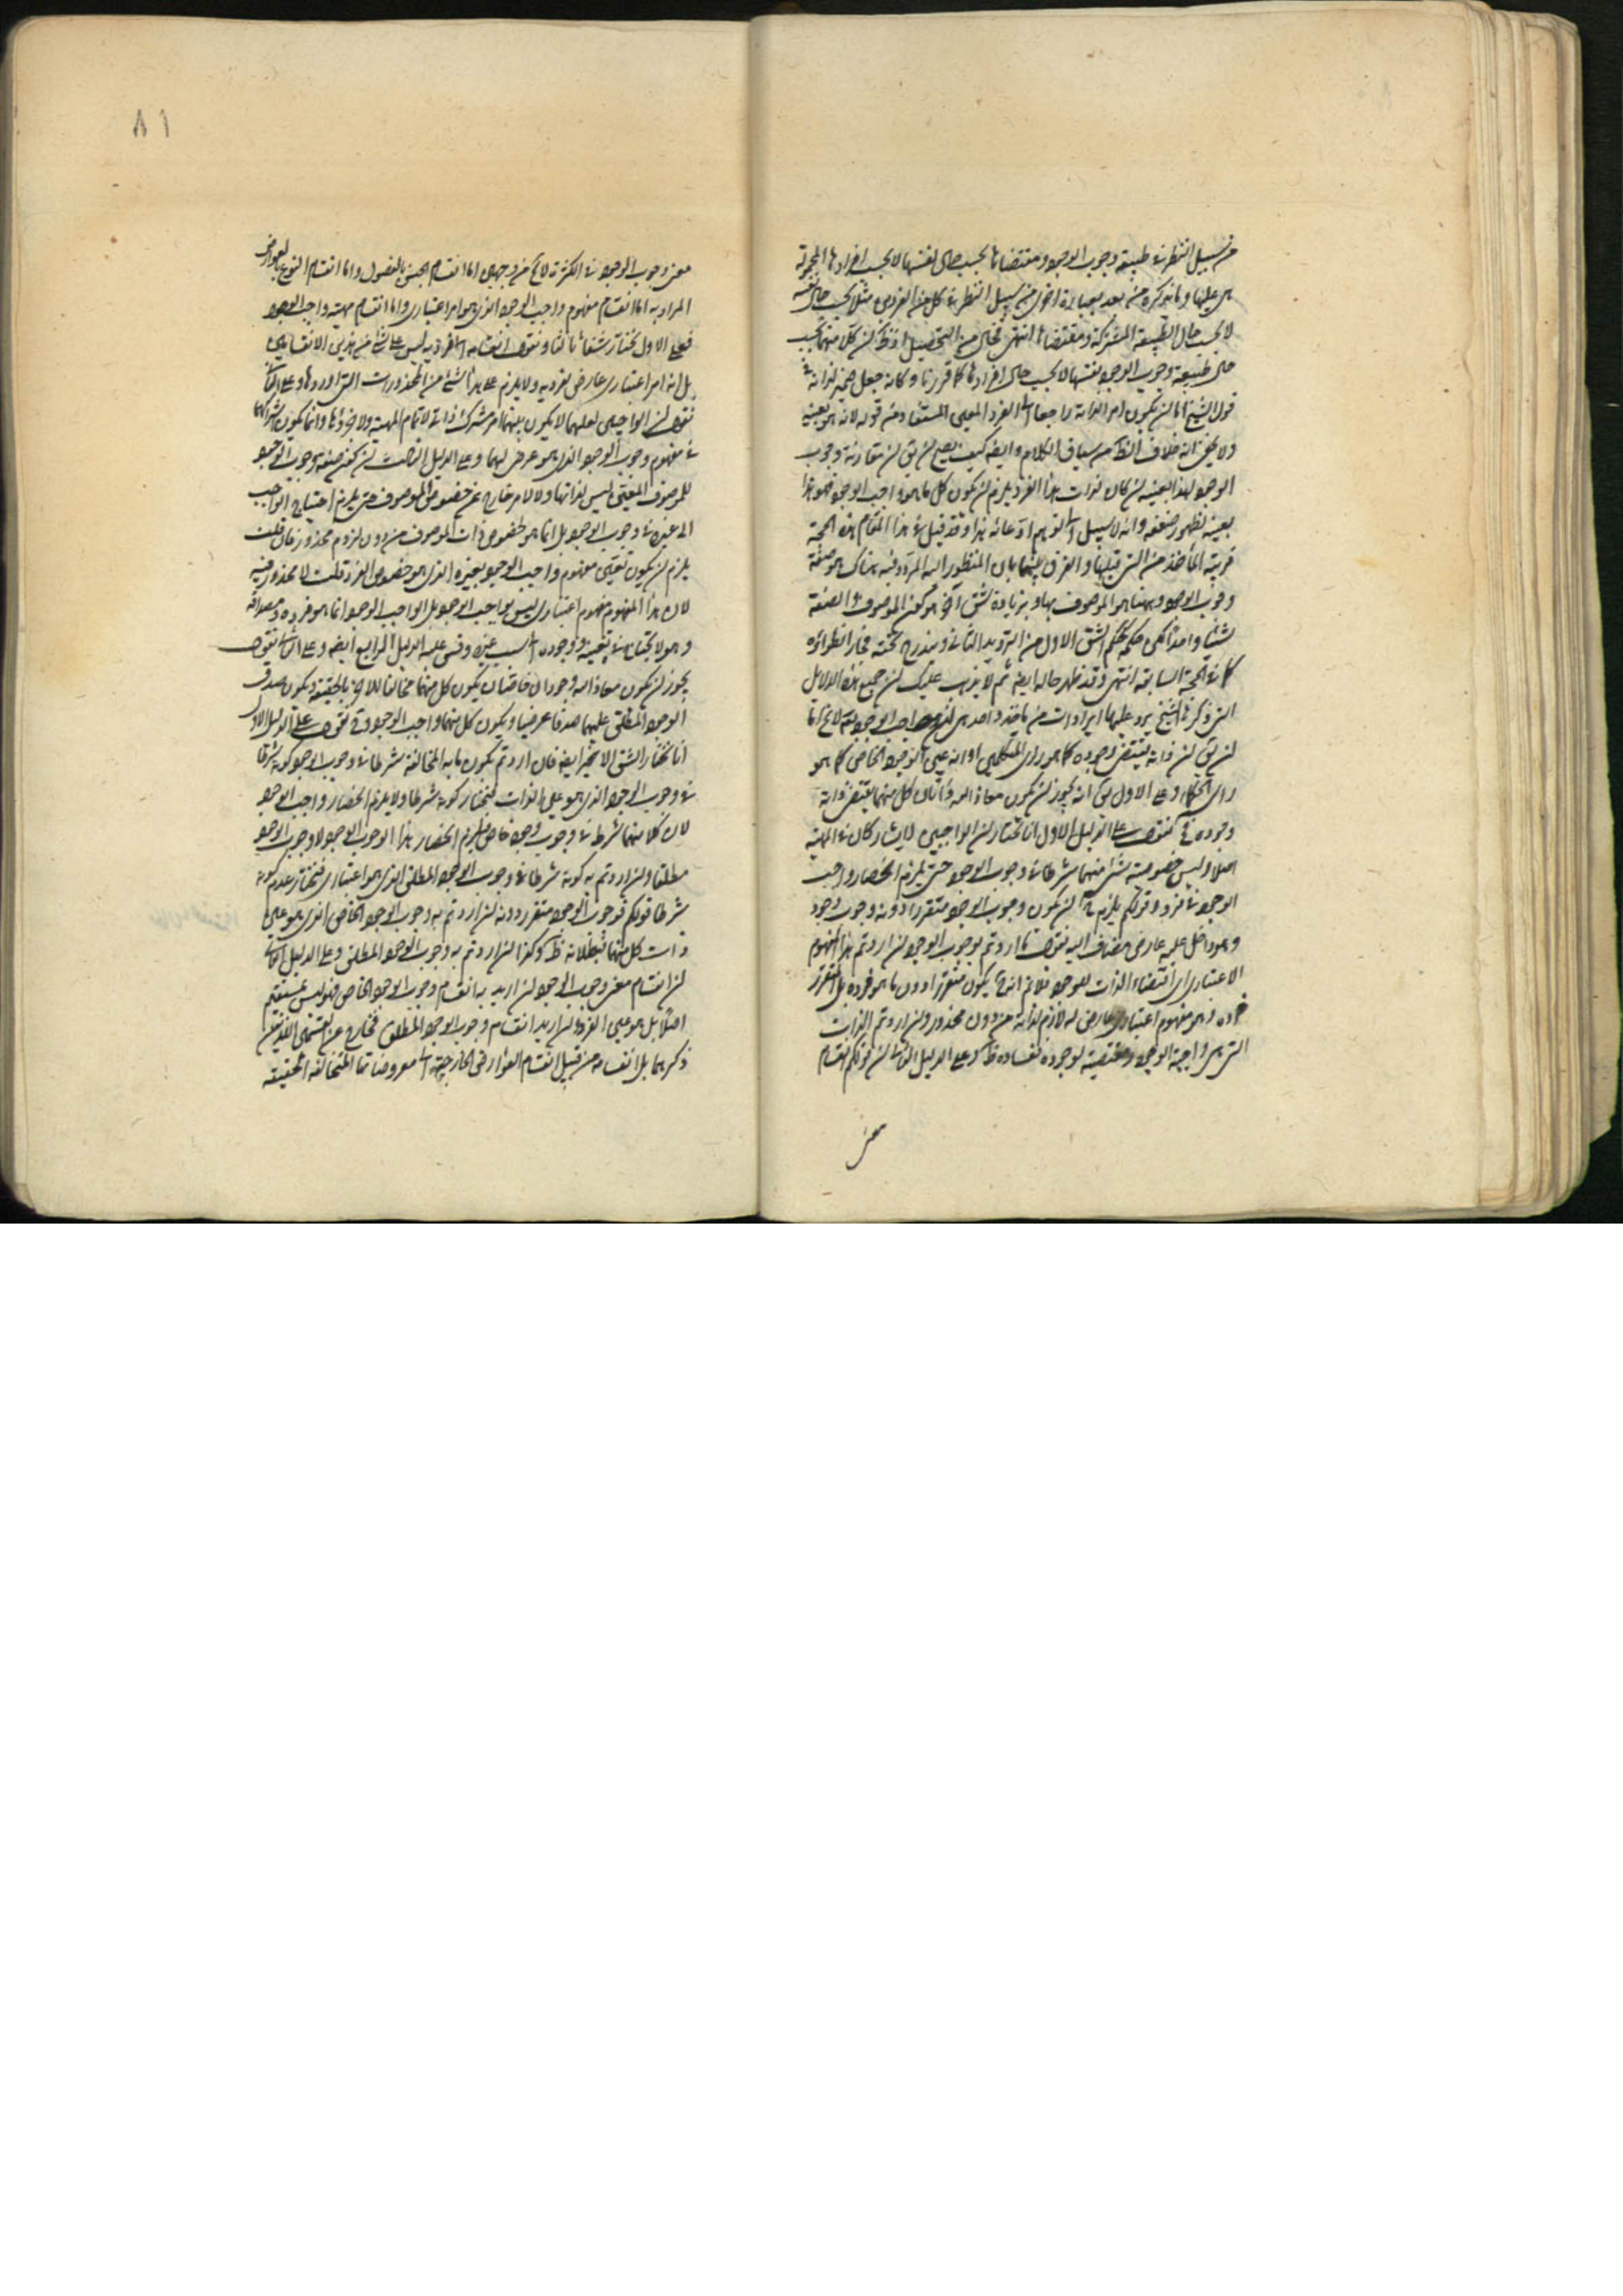 من سبيل النظر في طبيعة وجوب الوجود ومقتضاها بحسب حال نفسها لا بحسب افرادها المحمولة
هي عليها وما يذكره من بعد بعبارة اخرى من سبيل النظر في كل من الفردين مثلا بحسب حال نفسه
لا بحسب حال الطبيعة المشتركة ومقتضاها انتهى فخال من التحصيل اذ ظ ان كلا منهما بحسب
حال طبيعة وجوب الوجود نفسها لا بحسب حال افرادها كما قررنا وكانه جعل ضمير لذاته في
قول الشيخ اما ان يكون امرا لذاته راجعا الى الفرد المعين المستفاد من قوله لانه هو بعينه
ولا يخفى انه خلاف الظ من سياق الكلام وايضا كيف يصح ان يق ان مقارنة وجوب
الوجود لهذا بعينه ان كان لذات هذا الفرد يلزم ان يكون كل ما هو واجب الوجود فهو هذا
بعينه لظهور ضعفه وانه لا سبيل الى توهم ادعائه هذا وقد قيل في هذا المقام هذه الحجة
قريبة المأخذ من التي قبلها والفرق بينهما بان المنظور اليه المردد فيه هناك هو صفة
وجوب الوجود وههنا هو الموصوف بها وبزيادة شق اخر هو كون الموصوف والصفة
شيئا واحدا لكن حكمه حكم الشق الاول من الترديد الثاني ومندرج تحته
كما في الحجة السابقة انتهى وقد ظهر حاله ايضا ثم لا يذهب عليك ان جميع هذه الدلايل
التي ذكرها الشيخ يرد عليها ايرادات من مأخذ واحد هي ان واجب الوجود لا يخ اما
ان يق ان ذاته يقتضي وجوده كما هو راى المتكلمين او انه عين الوجود الخاص كما هو
راى الحكماء وعلى الاول يق انه يجوز ان يكون معاذ الله ذاتان كل منهما يقتضي ذاته
وجوده فح نقول على الدليل الاول انا نختار ان الواجبين لا يشاركان في المهية
اصلا وليس خصوصية شئ منهما شرطا في وجوب الوجود حتى يلزم انحصار واجب
الوجود في فرد وقولكم يلزم ح ان يكون وجوب الوجود متقررا دونه وجوب وجود
وهو داخل عليه عارض مضاف اليه نقول ما اردتم بوجوب الوجود ان اردتم هذا المفهوم
الاعتباري اى اقتضاء الذات للوجود فلانم انه ح يكون متقررا دون ما هو فرده بل المتقرر
فرده وهو مفهوم اعتباري عارض له لازم لذاته من دون محذور وان اردتم الذات
التي هي واجبة الوجود ومقتضية لوجوده ففساده ظ وعلى الدليل الثاني ان قولكم انقسام
معنى
٨١
معنى وجوب الوجود في الكثرة لا يخ من وجهين اما انقسام الجنس بالفصول واما انقسام النوع بالعوارض
المراد به اما انقسام مفهوم واجب الوجود الذي هو امر اعتباري واما انقسام مهية واجب الوجود
فعلى الاول نختار شقا ثالثا ونقول انقسامه الى افراده ليس على شئ من هذين الانقسامين
بل انه امر اعتباري عارض لفرديه ولا يلزم على هذا شئ من المحذورات التي اوردها وعلى الثاني
نقول ان الواجبين لعلهما لا يكون بينهما امر مشترك ذاتي لا تمام المهية ولا جزؤها وانما يكون اشتراكهما
في مفهوم وجوب الوجود الذي هو عرضي لهما وعلى الدليل الثالث ان تحقق صفة وجوب الوجود
للموصوف المعين ليس لذاتها ولا لامر خارج عن خصوص الموصوف حتى يلزم احتياج الواجب
الى غيره في وجوب الوجود بل انما هو لخصوص ذات الموصوف من دون لزوم محذور فان قلت
يلزم ان يكون تعين مفهوم واجب الوجود بغيره الذي هو خصوص الفرد قلت لا محذور فيه
لان هذا المفهوم مفهوم اعتباري ليس بواجب الوجود بل الواجب الوجود انما هو فرده ومصداقه
وهو لا يحتاج في تعينه ووجوده الى سبب غيره وقس عليه الدليل الرابع ايضا وعلى الثاني نقول
يجوز ان يكون معاذ الله وجودان خاصان يكون كل منهما مخالفا للاخر بالحقيقة ويكون صدق
الوجود المطلق عليهما صدقا عرضيا ويكون كل منهما واجب الوجود وح نقول على الدليل الاول
انا نختار الشق الاخير ايضا فان اردتم بكون ما به المخالفة شرطا في وجوب الوجود كونه شرطا
في وجوب الوجود الذي هو عين الذات فنختار كونه شرطا ولا يلزم انحصار واجب الوجود
لان كلا منهما شرط في وجوب وجود خاص فيلزم انحصار هذا الوجوب الوجود لا وجوب الوجود
مطلقا وان اردتم به كونه شرطا في وجوب الوجود المطلق الذي هو اعتباري فنختار عدم كونه
شرطا قولكم فوجوب الوجود متقرر دونه ان اردتم به وجوب الوجود الخاص الذي هو عين
ذات كل منهما فبطلانه ظ وكذا ان اردتم به وجوب الوجود المطلق وعلى الدليل الثاني
ان انقسام معنى وجوب الوجود ان اريد به انقسام وجوب الوجود الخاص فهو ليس بمنقسم
اصلا بل هو عين الفرد وان اريد انقسام وجوب الوجود المطلق فخارج عن القسمين اللذين
ذكرهما بل انقسامه من قبيل انقسام العوارض الخارجة الى معروضاتها المتخالفة الحقيقة